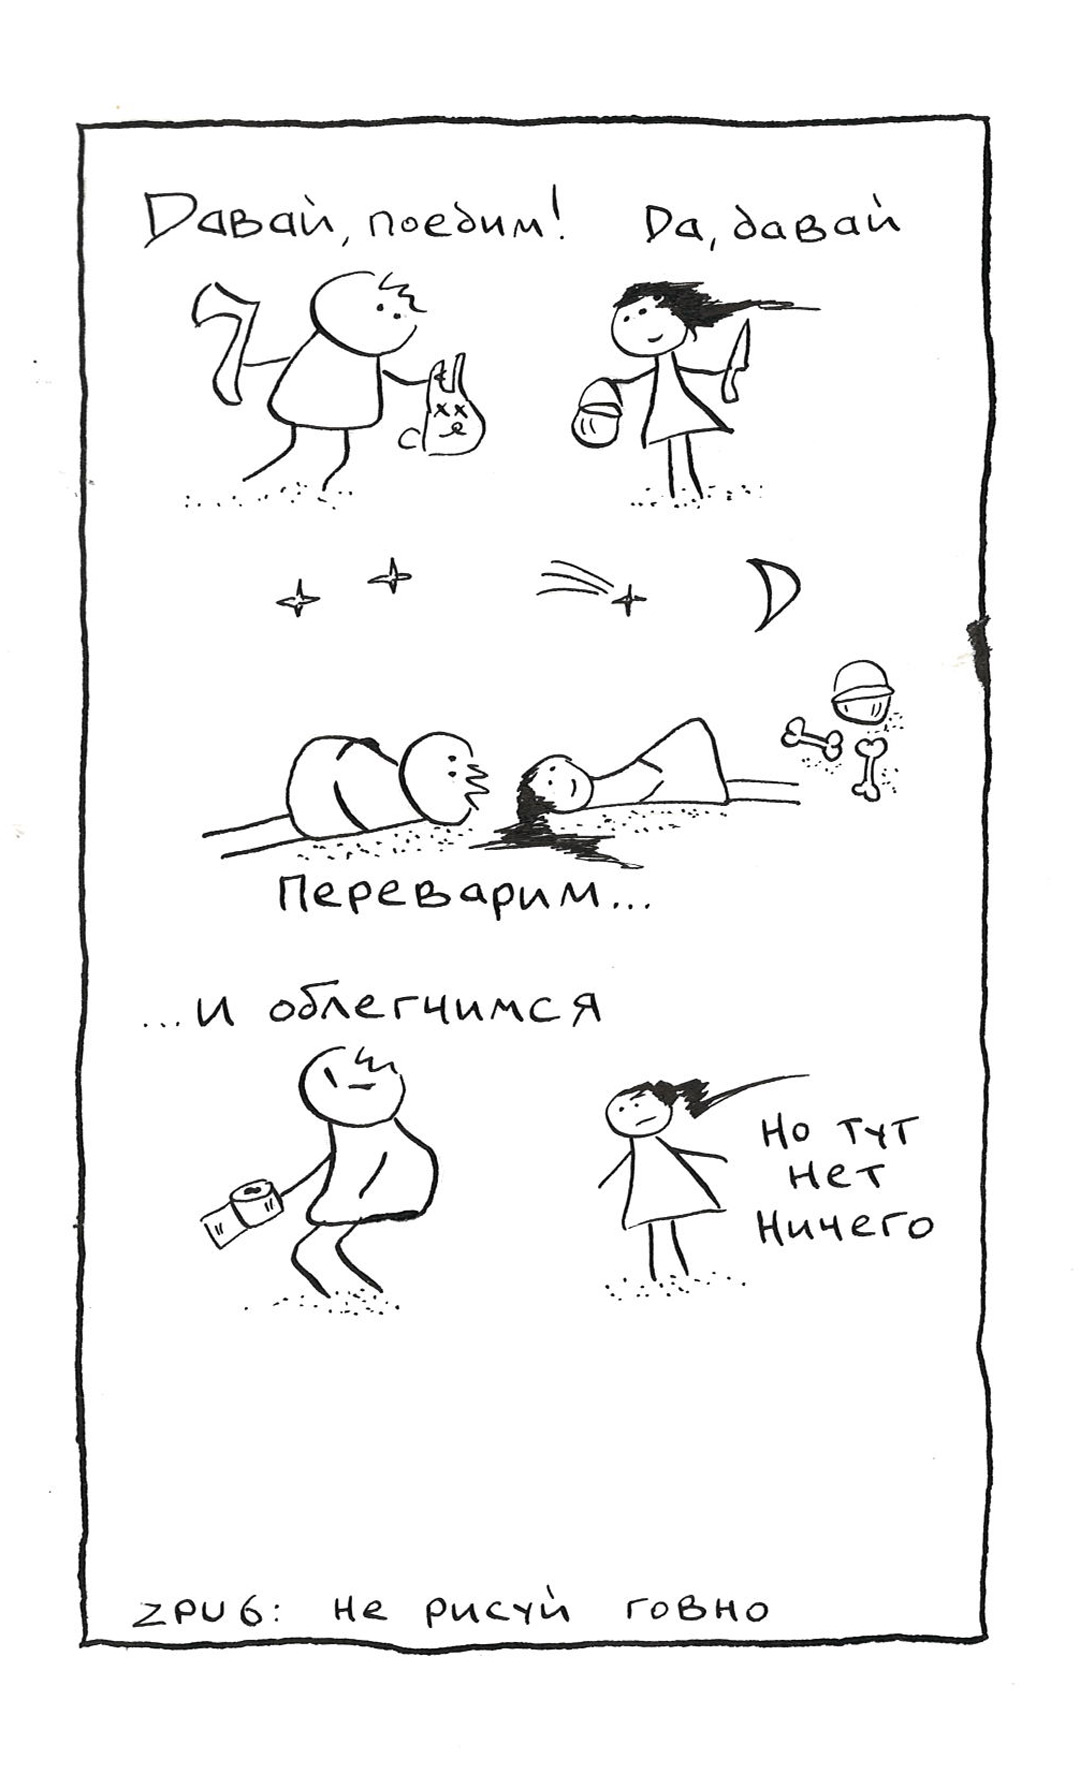 Давай, поедим!
Да, давай
Переварим...
...и облегчимся
Но тут
нет
ничего
ZPU6: не рисуй говно